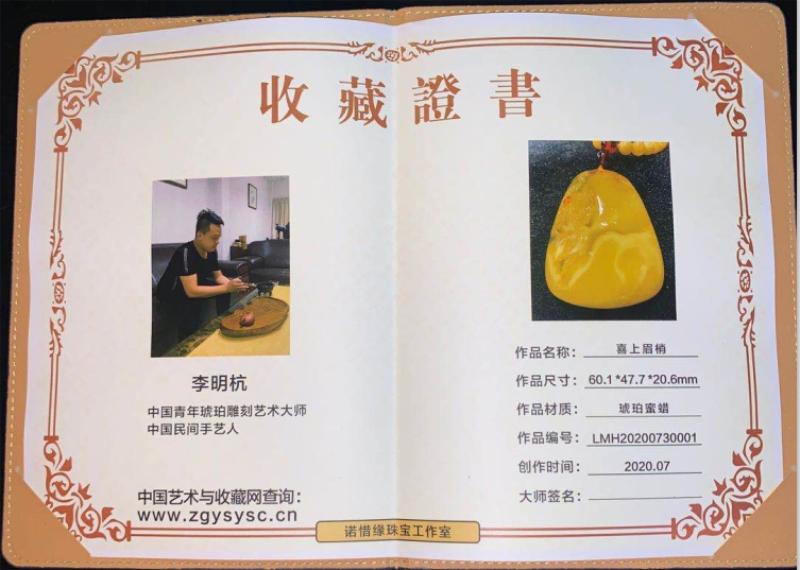 收藏證書
李明杭
中国青年琥珀雕刻艺术大师
中国民间手艺人
中国艺术与收藏网查询：
www.zgysysc.cn
作品名称： 喜上眉梢
作品尺寸： 60.1*47.7*20.6mm
作品材质： 琥珀蜜蜡
作品编号： LMH20200730001
创作时间： 2020.07
大师签名：
诺惜缘珠宝工作室